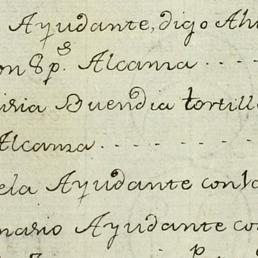 Ayudante, digo Ahu
on 8 p.s Alcama . . . .
iria Buendia tortill
Alcama . . . . . . .
ela Ayudante conta
nario Ayudante co